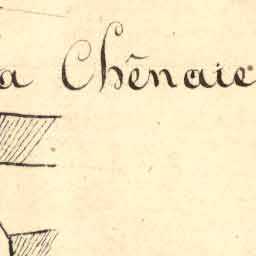 a Chênaie